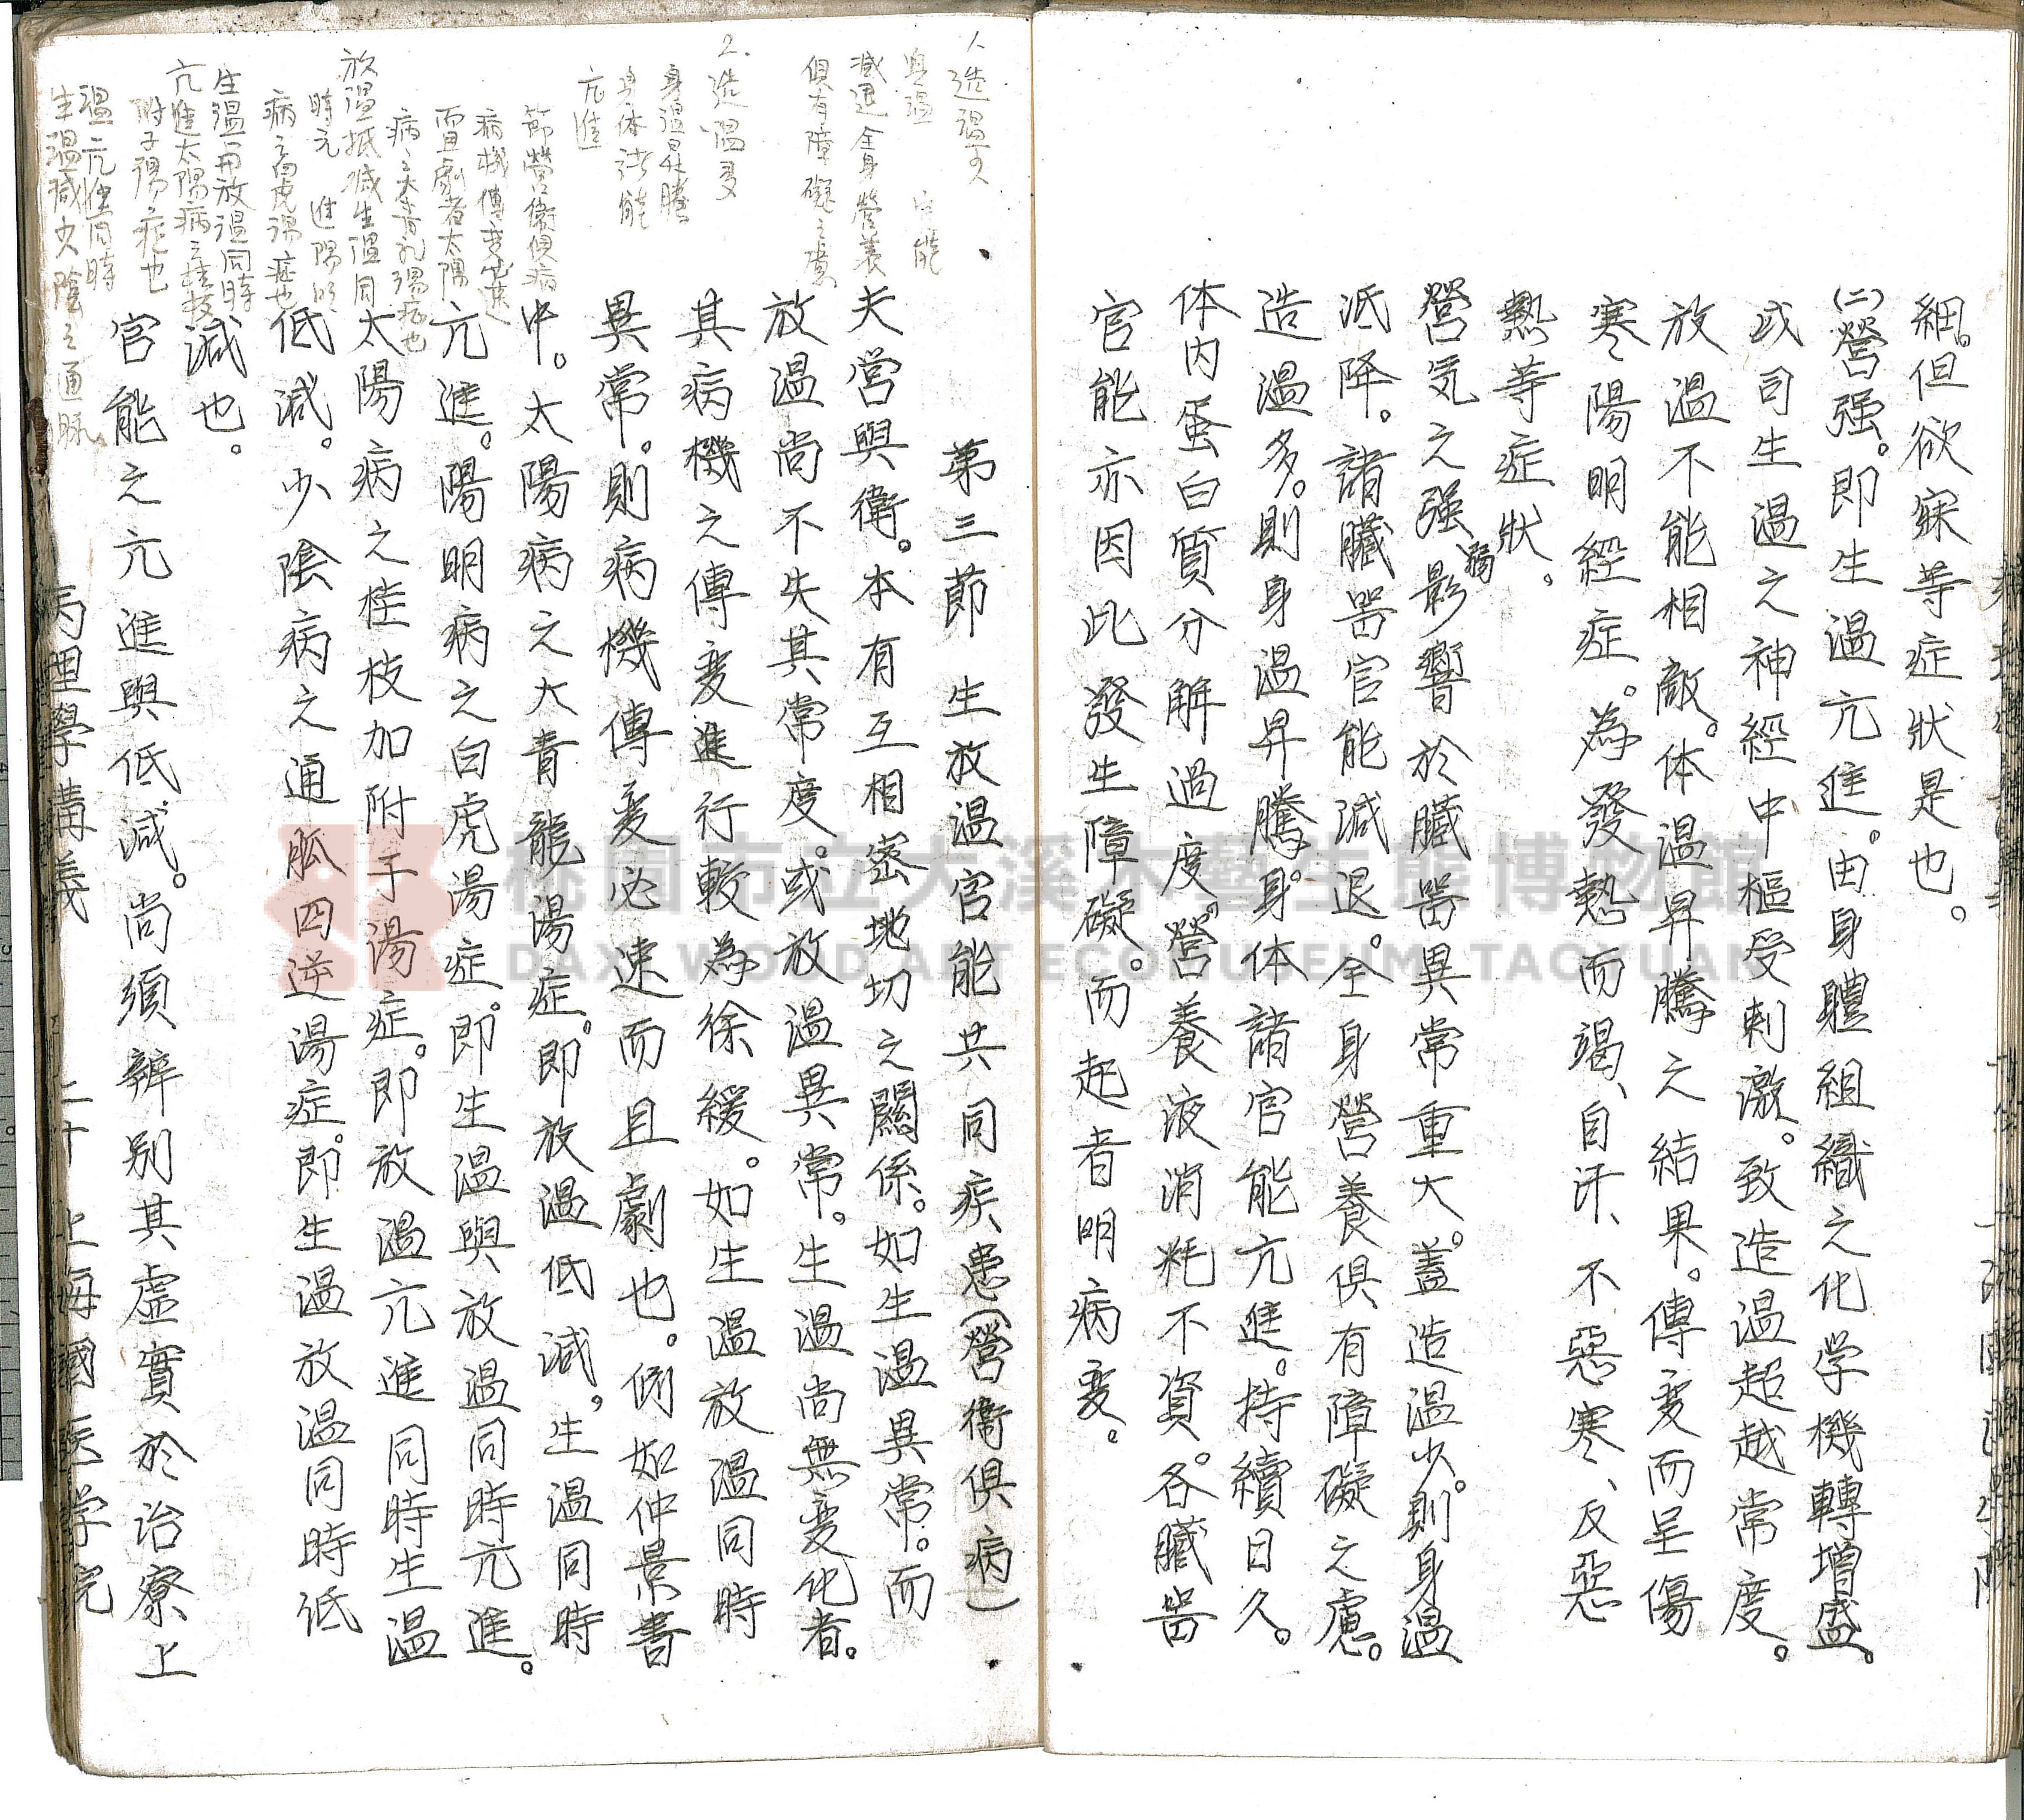 細。但欲寐等症狀是也。
(二)營强。即生温亢進。由身體組織之化学機轉增盛。
或司生温之神經中樞受刺激。致造温超越常度。
放温不能相敵。体温昇騰之結果。傳变而呈傷
寒陽明經症。為發熱而渴、自汗、不惡寒、反惡
熱等症狀。
營気之强弱影響於臟器異常重大。蓋造温少。則身温
低降。諸臟器官能減退。全身營養俱有障礙之慮。
造温多。則身温昇騰。身体諸官能亢進。持續日久。
体内蛋白質分解過度。營養液消耗不資。各臟器
官能亦因此發生障礙。而起者明病变。
第三節 生放温官能共同疾患(營衛俱病)
夫営與衛。本有互相密地切之關係。如生温異常。而
放温尚不失其常度。或放温異常。生温尚無变化者。
其病機之傳变進行較為徐緩。如生温放温同時
異常。則病機傳变必速而且劇也。例如仲景書
中。太陽病之大青龍湯症。即放温低減。生温同時
亢進。陽明病之白虎湯症。即生温與放温同時亢進。
太陽病之桂枝加附子湯症。即放温亢進同時生温
低減。少陰病之通脈四逆湯症。即生温放温同時低
減也。
官能之亢進與低減。尚須辨别其虚實於治療上
病理學講義 二十 上海國医学院
造温少
身温 官能
減退全身營養
俱有障礙之慮
2.造温多
身温昇騰
身体諸能
亢進
節營衛俱病
病機傳变必速
而且劇者太陽
病之大青礼湯症也
放温抵減生温同
時亢進陽明
病之白虎湯症也
生温與放温同時
亢進太陽病之桂枝
附子湯症也
温亢進同時
生温減少陰之通脈
桃園市立大溪木藝生態博物館
DAXI WOOD ART ECOMUSEUM, TAOYUAN